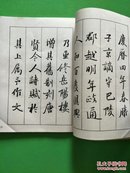 慶曆四年春滕
子京謫守巴陵
郡越明年政通
人和百廢具興
乃重修岳陽樓
增其舊制刻唐
賢今人詩賦於
其上屬予作文